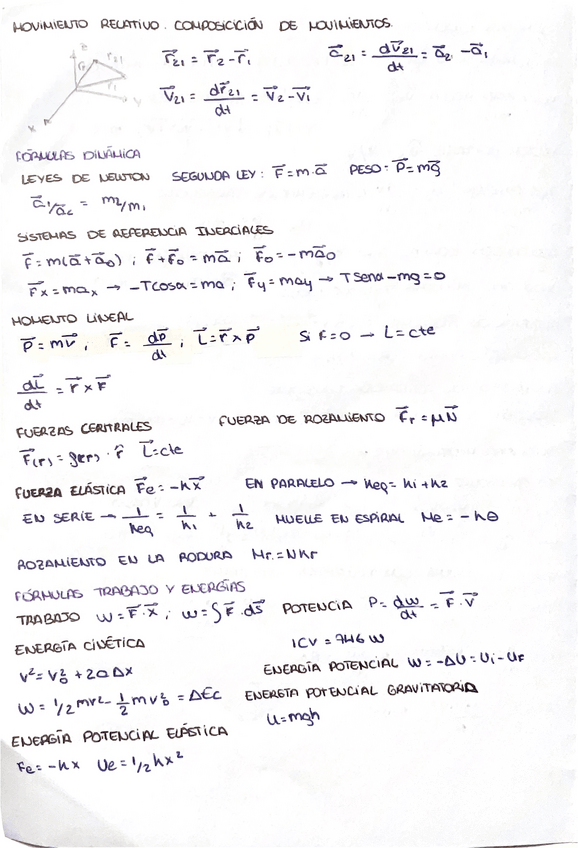 MOVIMIENTO RELATIVO. COMPOSICICIÓN DE MOVIMIENTOS.
z r⃗21 r⃗1 y x
r⃗21 = r⃗2 - r⃗1 a⃗21 = dv⃗21/dt = a⃗2 - a⃗1
v⃗21 = dr⃗21/dt = v⃗2 - v⃗1
FÓRMULAS DINÁMICA
LEYES DE NEWTON SEGUNDA LEY: F⃗=m·a⃗ PESO: P⃗=mg⃗
a⃗1/a⃗2 = m2/m1
SISTEMAS DE REFERENCIA INERCIALES
F⃗=m(a⃗+a⃗0) ; F⃗+F⃗0=ma⃗ ; F⃗0=-ma⃗0
F⃗x=max → -Tcosα=ma ; F⃗y=may → Tsenα-mg=0
MOMENTO LINEAL
P⃗=mv⃗ ; F⃗= dp⃗/dt ; L⃗=r⃗×p⃗ Si F=0 → L=cte
dL⃗/dt = r⃗×F⃗
FUERZAS CENTRALES FUERZA DE ROZAMIENTO F⃗r=μN⃗
F⃗(r)=g(r)·r̂ L⃗=cte
FUERZA ELÁSTICA F⃗e=-kx⃗ EN PARALELO → keq=k1+k2
EN SERIE → 1/keq = 1/k1 + 1/k2 MUELLE EN ESPIRAL Me=-kθ
ROZAMIENTO EN LA RODURA Mr=Nkr
FÓRMULAS TRABAJO Y ENERGÍAS
TRABAJO W=F⃗·x⃗ ; W=∫F⃗·ds⃗ POTENCIA P=dw/dt=F⃗·v⃗
ENERGÍA CINÉTICA 1CV=746W
v²=v0²+2aΔx ENERGÍA POTENCIAL W=-ΔU=Ui-UF
W=1/2mv²-1/2mv0²=ΔEc ENERGÍA POTENCIAL GRAVITATORIA
U=mgh
ENERGÍA POTENCIAL ELÁSTICA
Fe=-kx Ue=1/2kx²